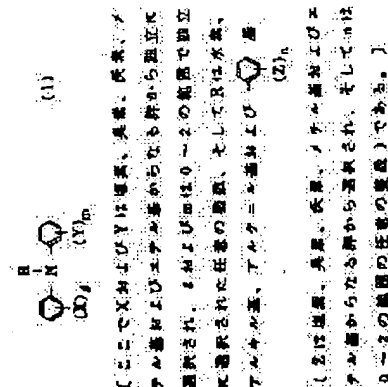 H
N
(X)ℓ (Y)m (1)
(ここでXおよびYは塩素、臭素、沃素、メ
チル基およびエチル基からなる群から独立に
選択され、ℓおよびmは0～2の範囲で独立
に選択された任意の整数、そしてRは水素、
アルキル基、アルケニル基および 基
(Z)n
(Zは塩素、臭素、沃素、メチル基およびエ
チル基からなる群から選択され、そしてnは
0～2の範囲の任意の整数)である。)